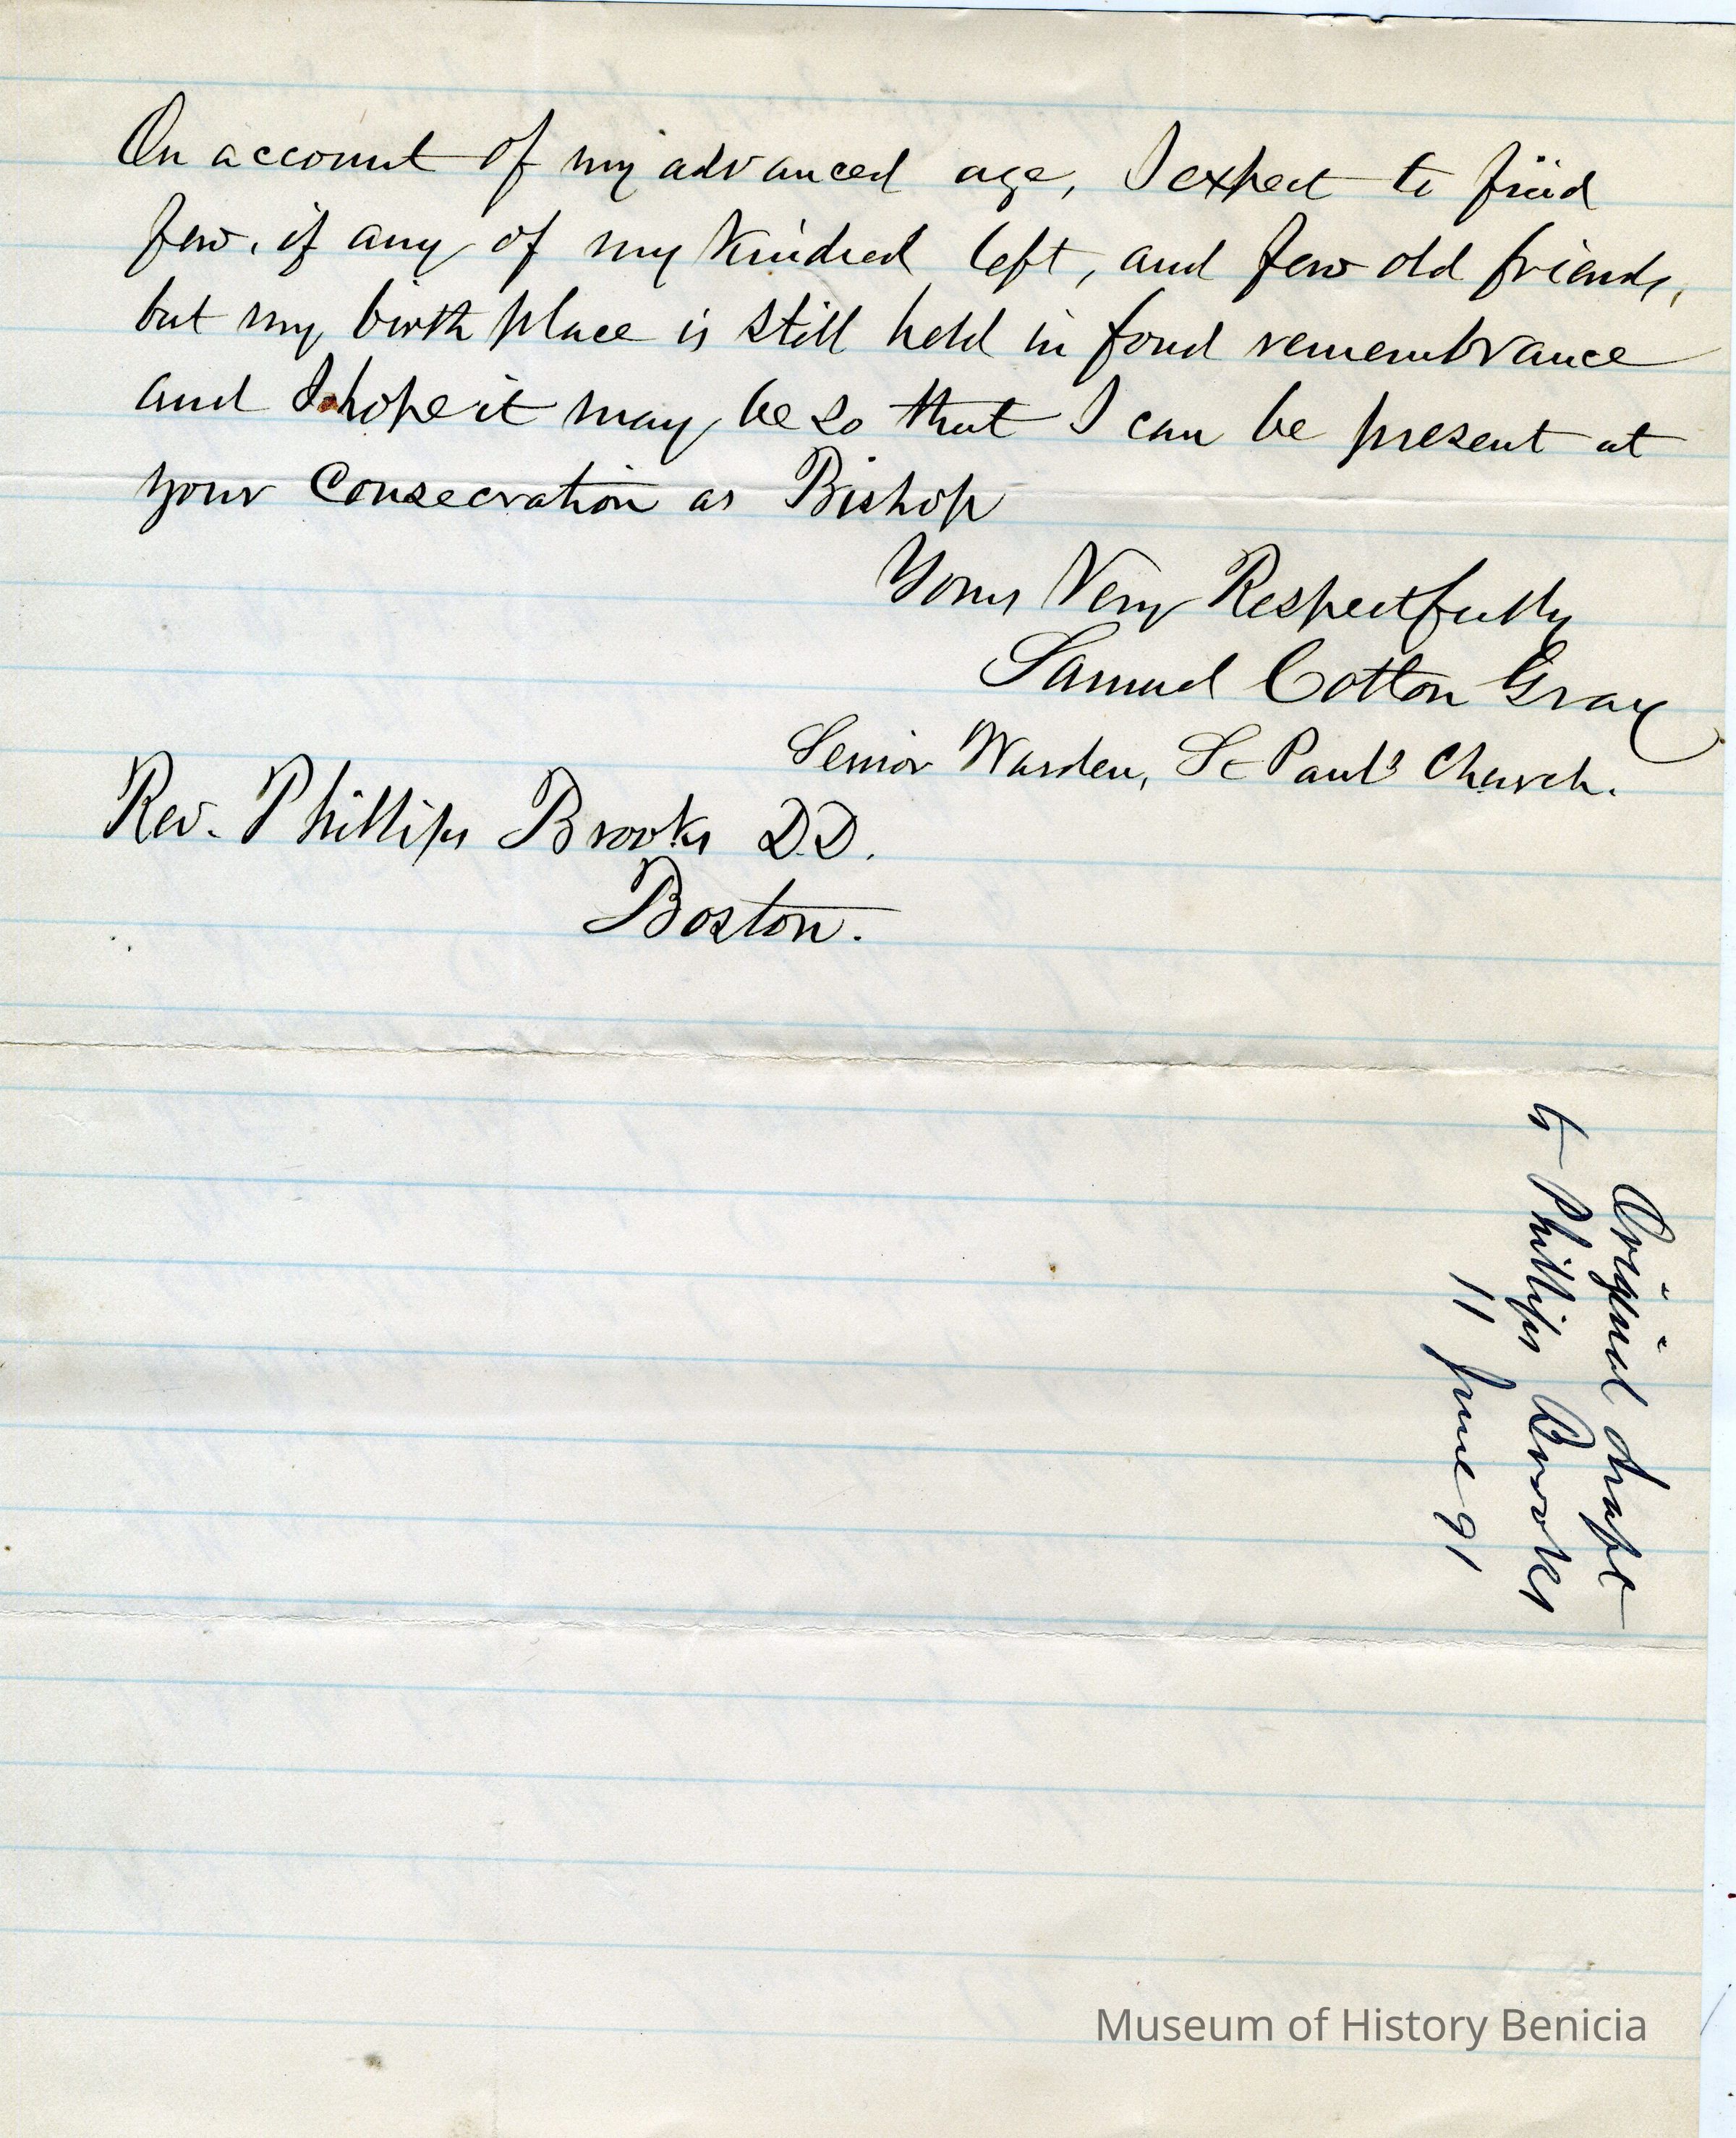 On account of my advanced age, I expect to find
few, if any of my kindred left, and few old friends,
but my birth place is still held in fond remembrance
and I hope it may be so that I can be present at
your Consecration as Bishop
Yours Very Respectfully
Samuel Cotton Gray
Senior Warden, St Paul's Church.
Rev. Phillips Brooks D.D.
Boston.
Original draft
to Phillips Brooks
11 June 91
Museum of History Benicia